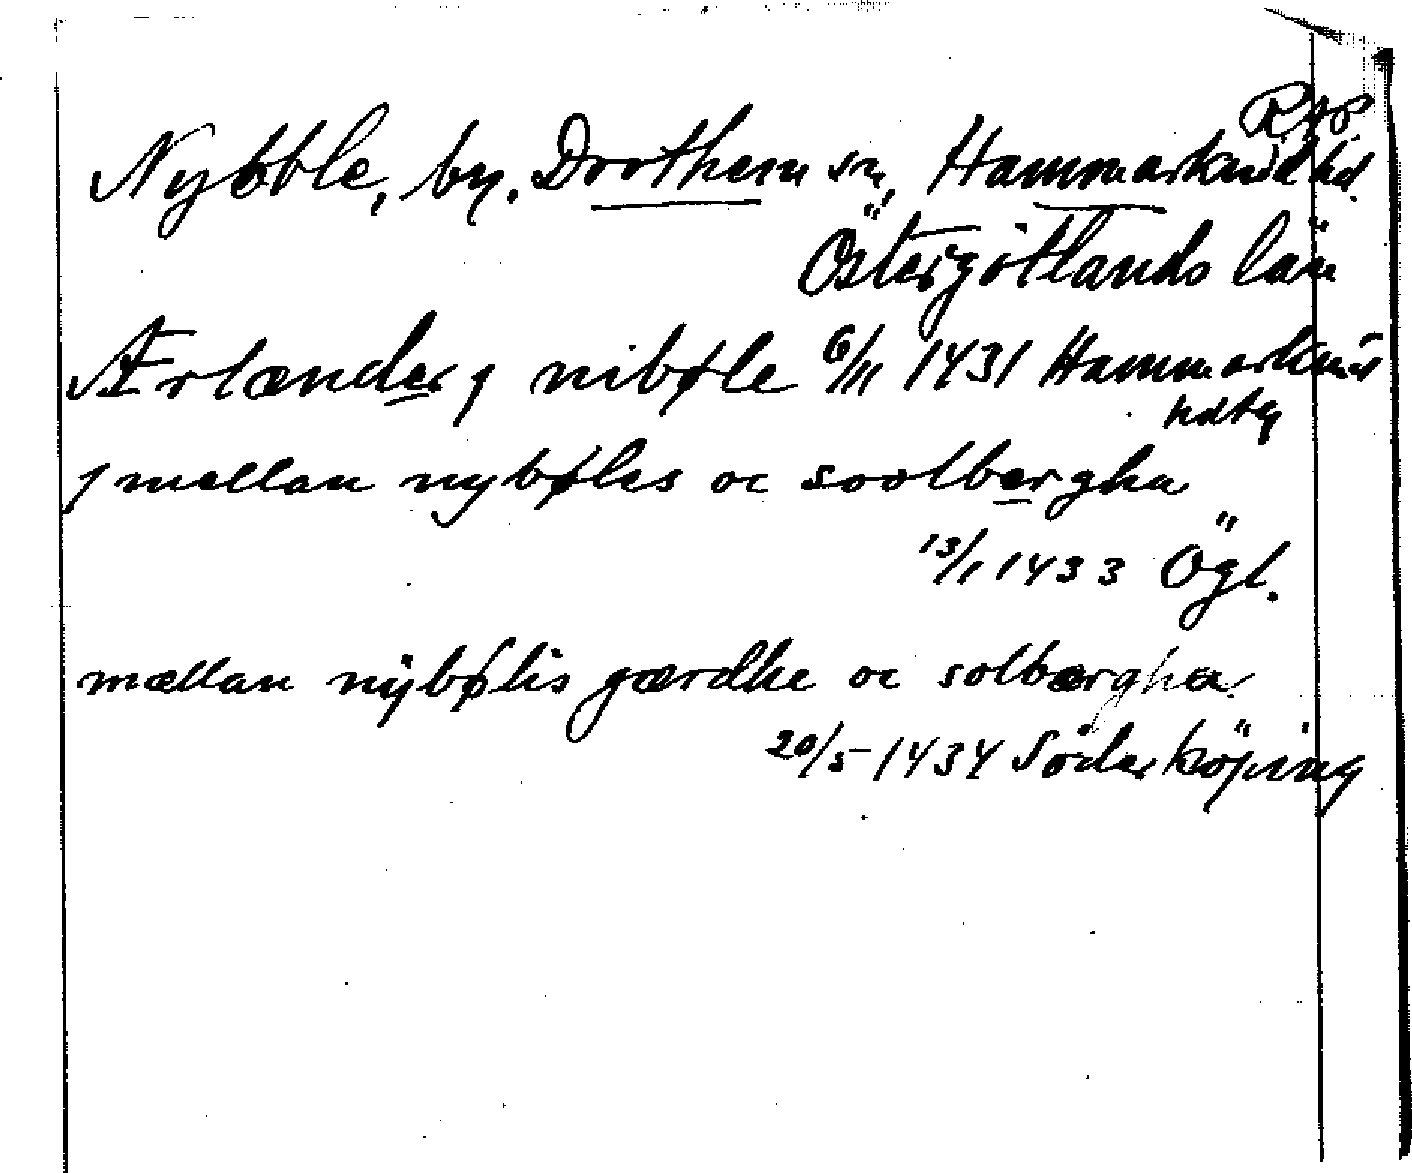 RAP
Nybble, by. Drothem sn, Hammarkind hd.
Östergötlands län
Ærlænder j nibøle 6/11 1431 Hammarkinds
hdtg
j mellan nybølis oc soolbergha
13/1 1433 Ögl.
mællan nÿbølis gærdhe oc solbærgha
20/5 1434 Söderköping